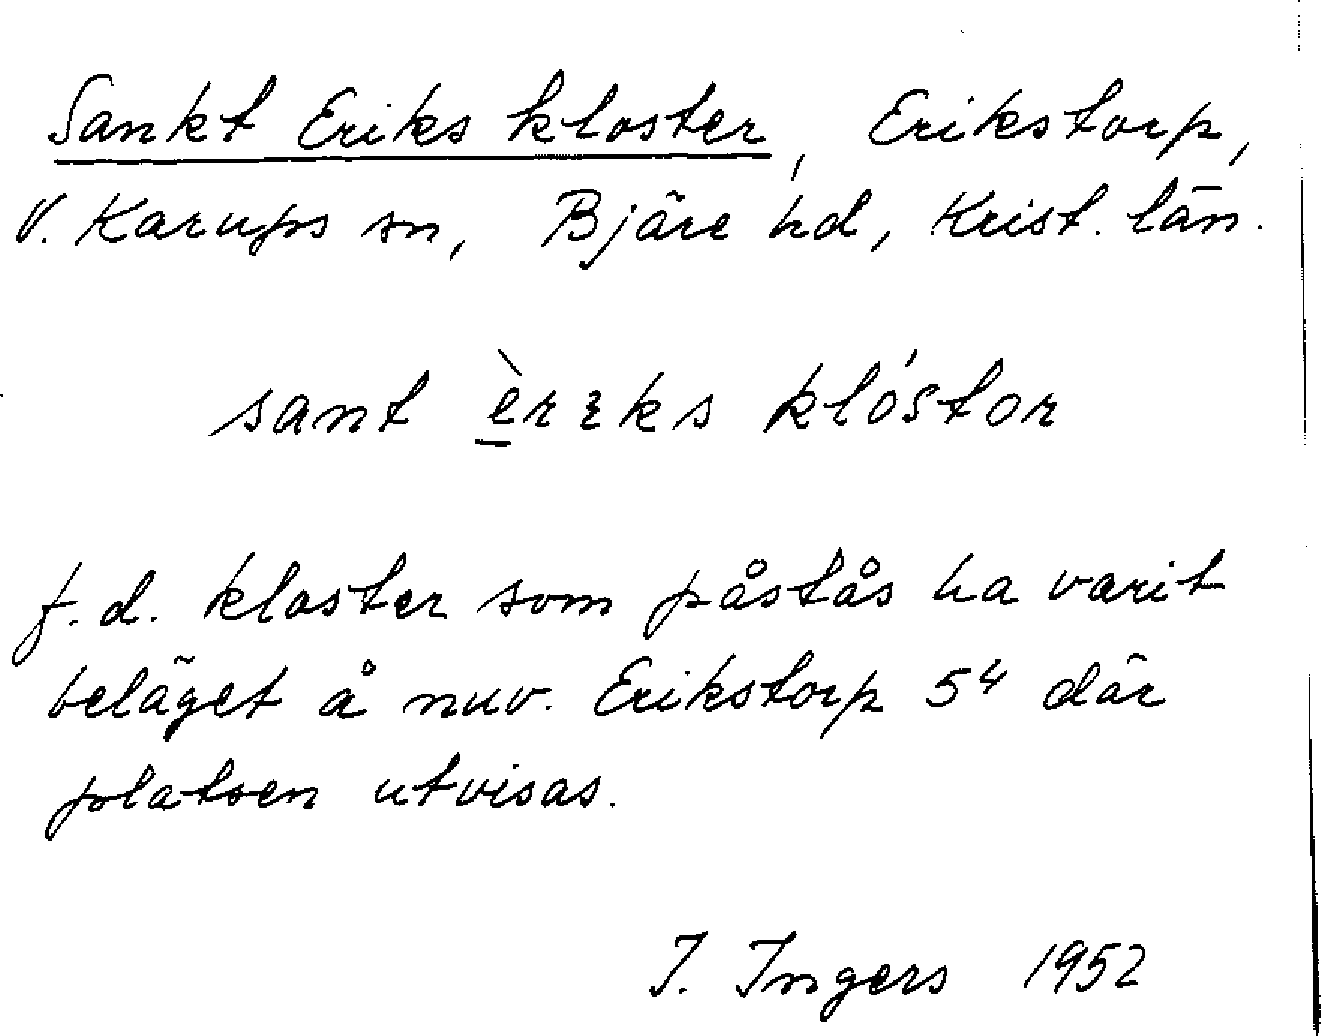 Sankt Eriks kloster, Erikstorp,
V. Karups sn, Bjäre hd, Krist. län.
sant è̲rıks klóstor
f.d. kloster som påstås ha varit
beläget å nuv. Erikstorp 5⁴ där
platsen utvisas.
I. Ingers 1952